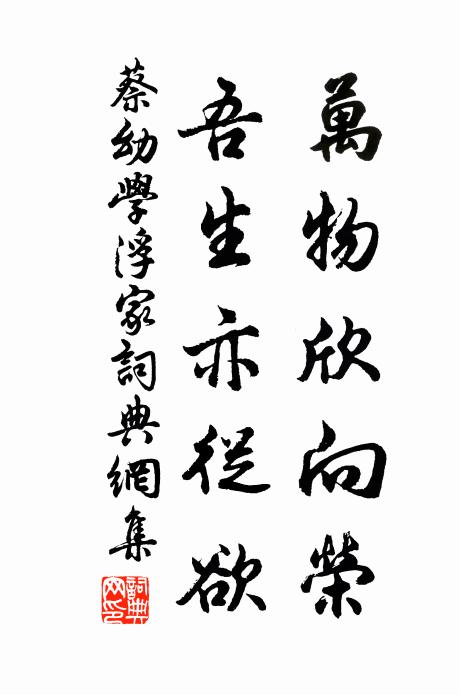 萬物欣向榮
吾生亦從欲
蔡幼學浮家詞典網集
詞典網印